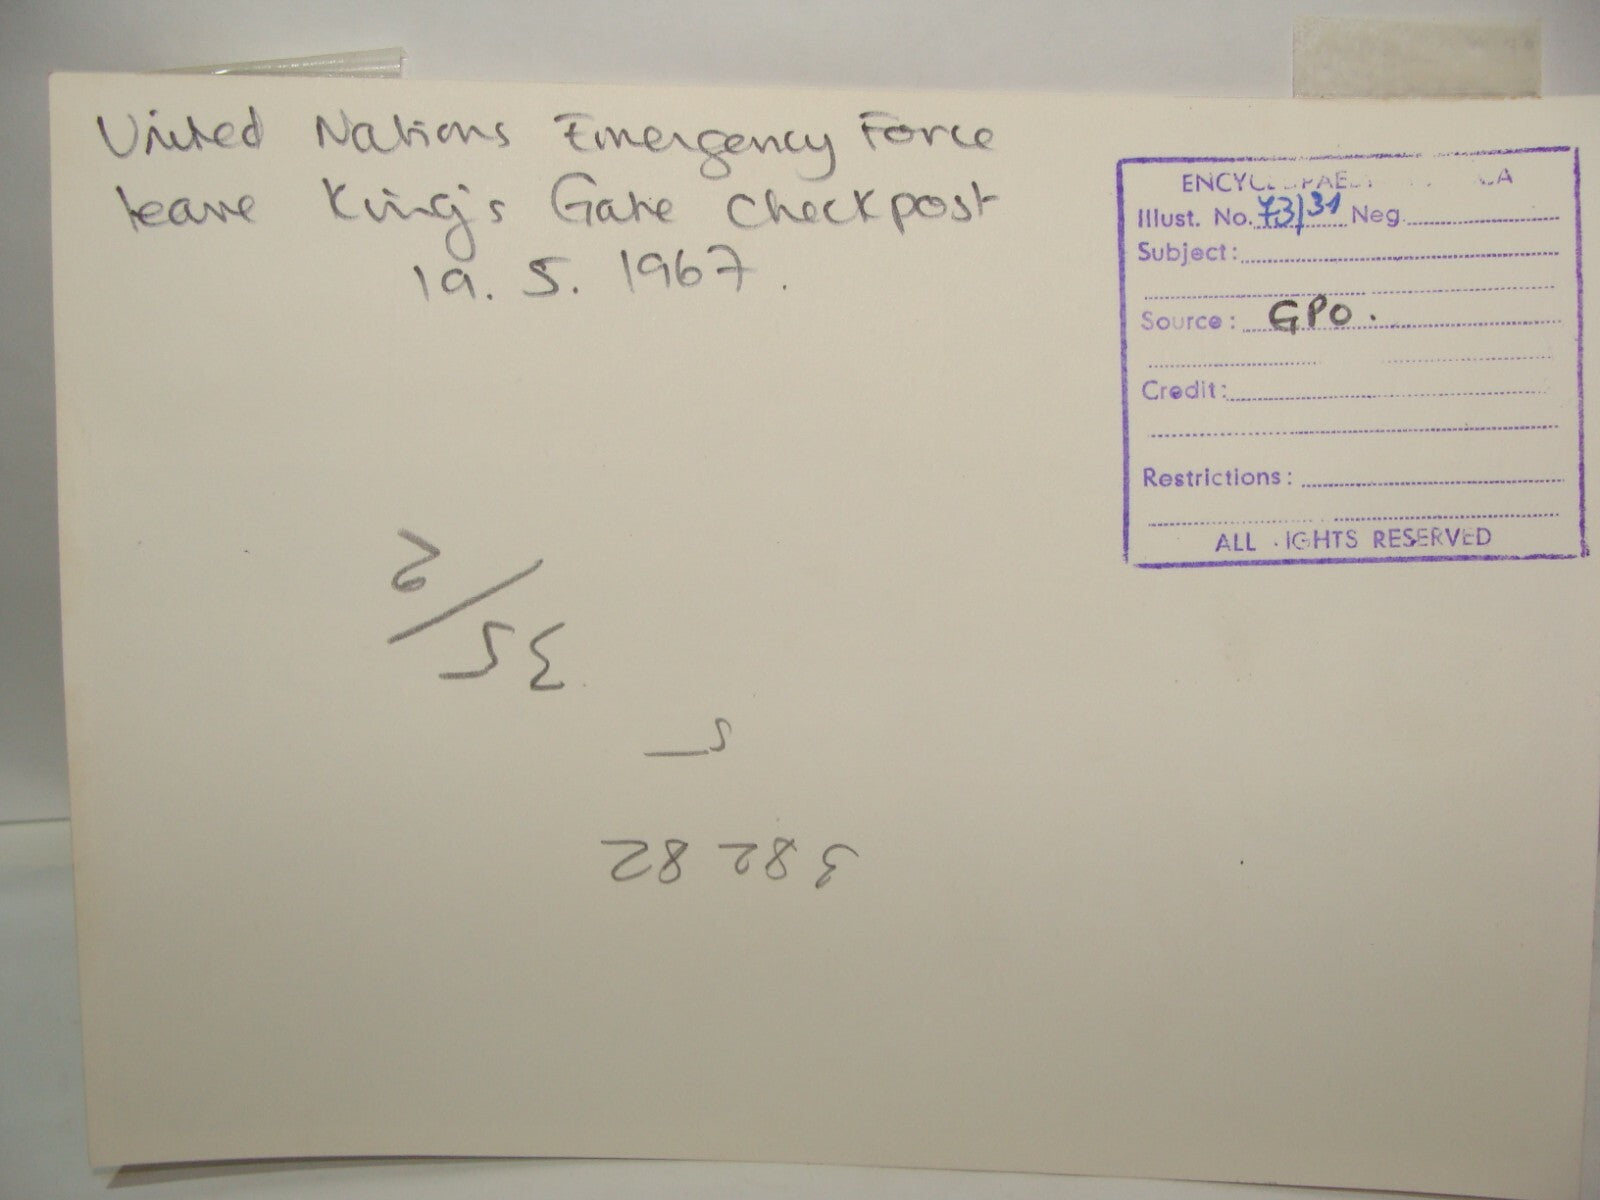 United Nations Emergency Force
leave King's Gate Checkpost
19. 5. 1967.
Illust. No. 73/31 Neg.
Subject:
Source: GPO.
Credit:
Restrictions:
ALL IGHTS RESERVED
35/2